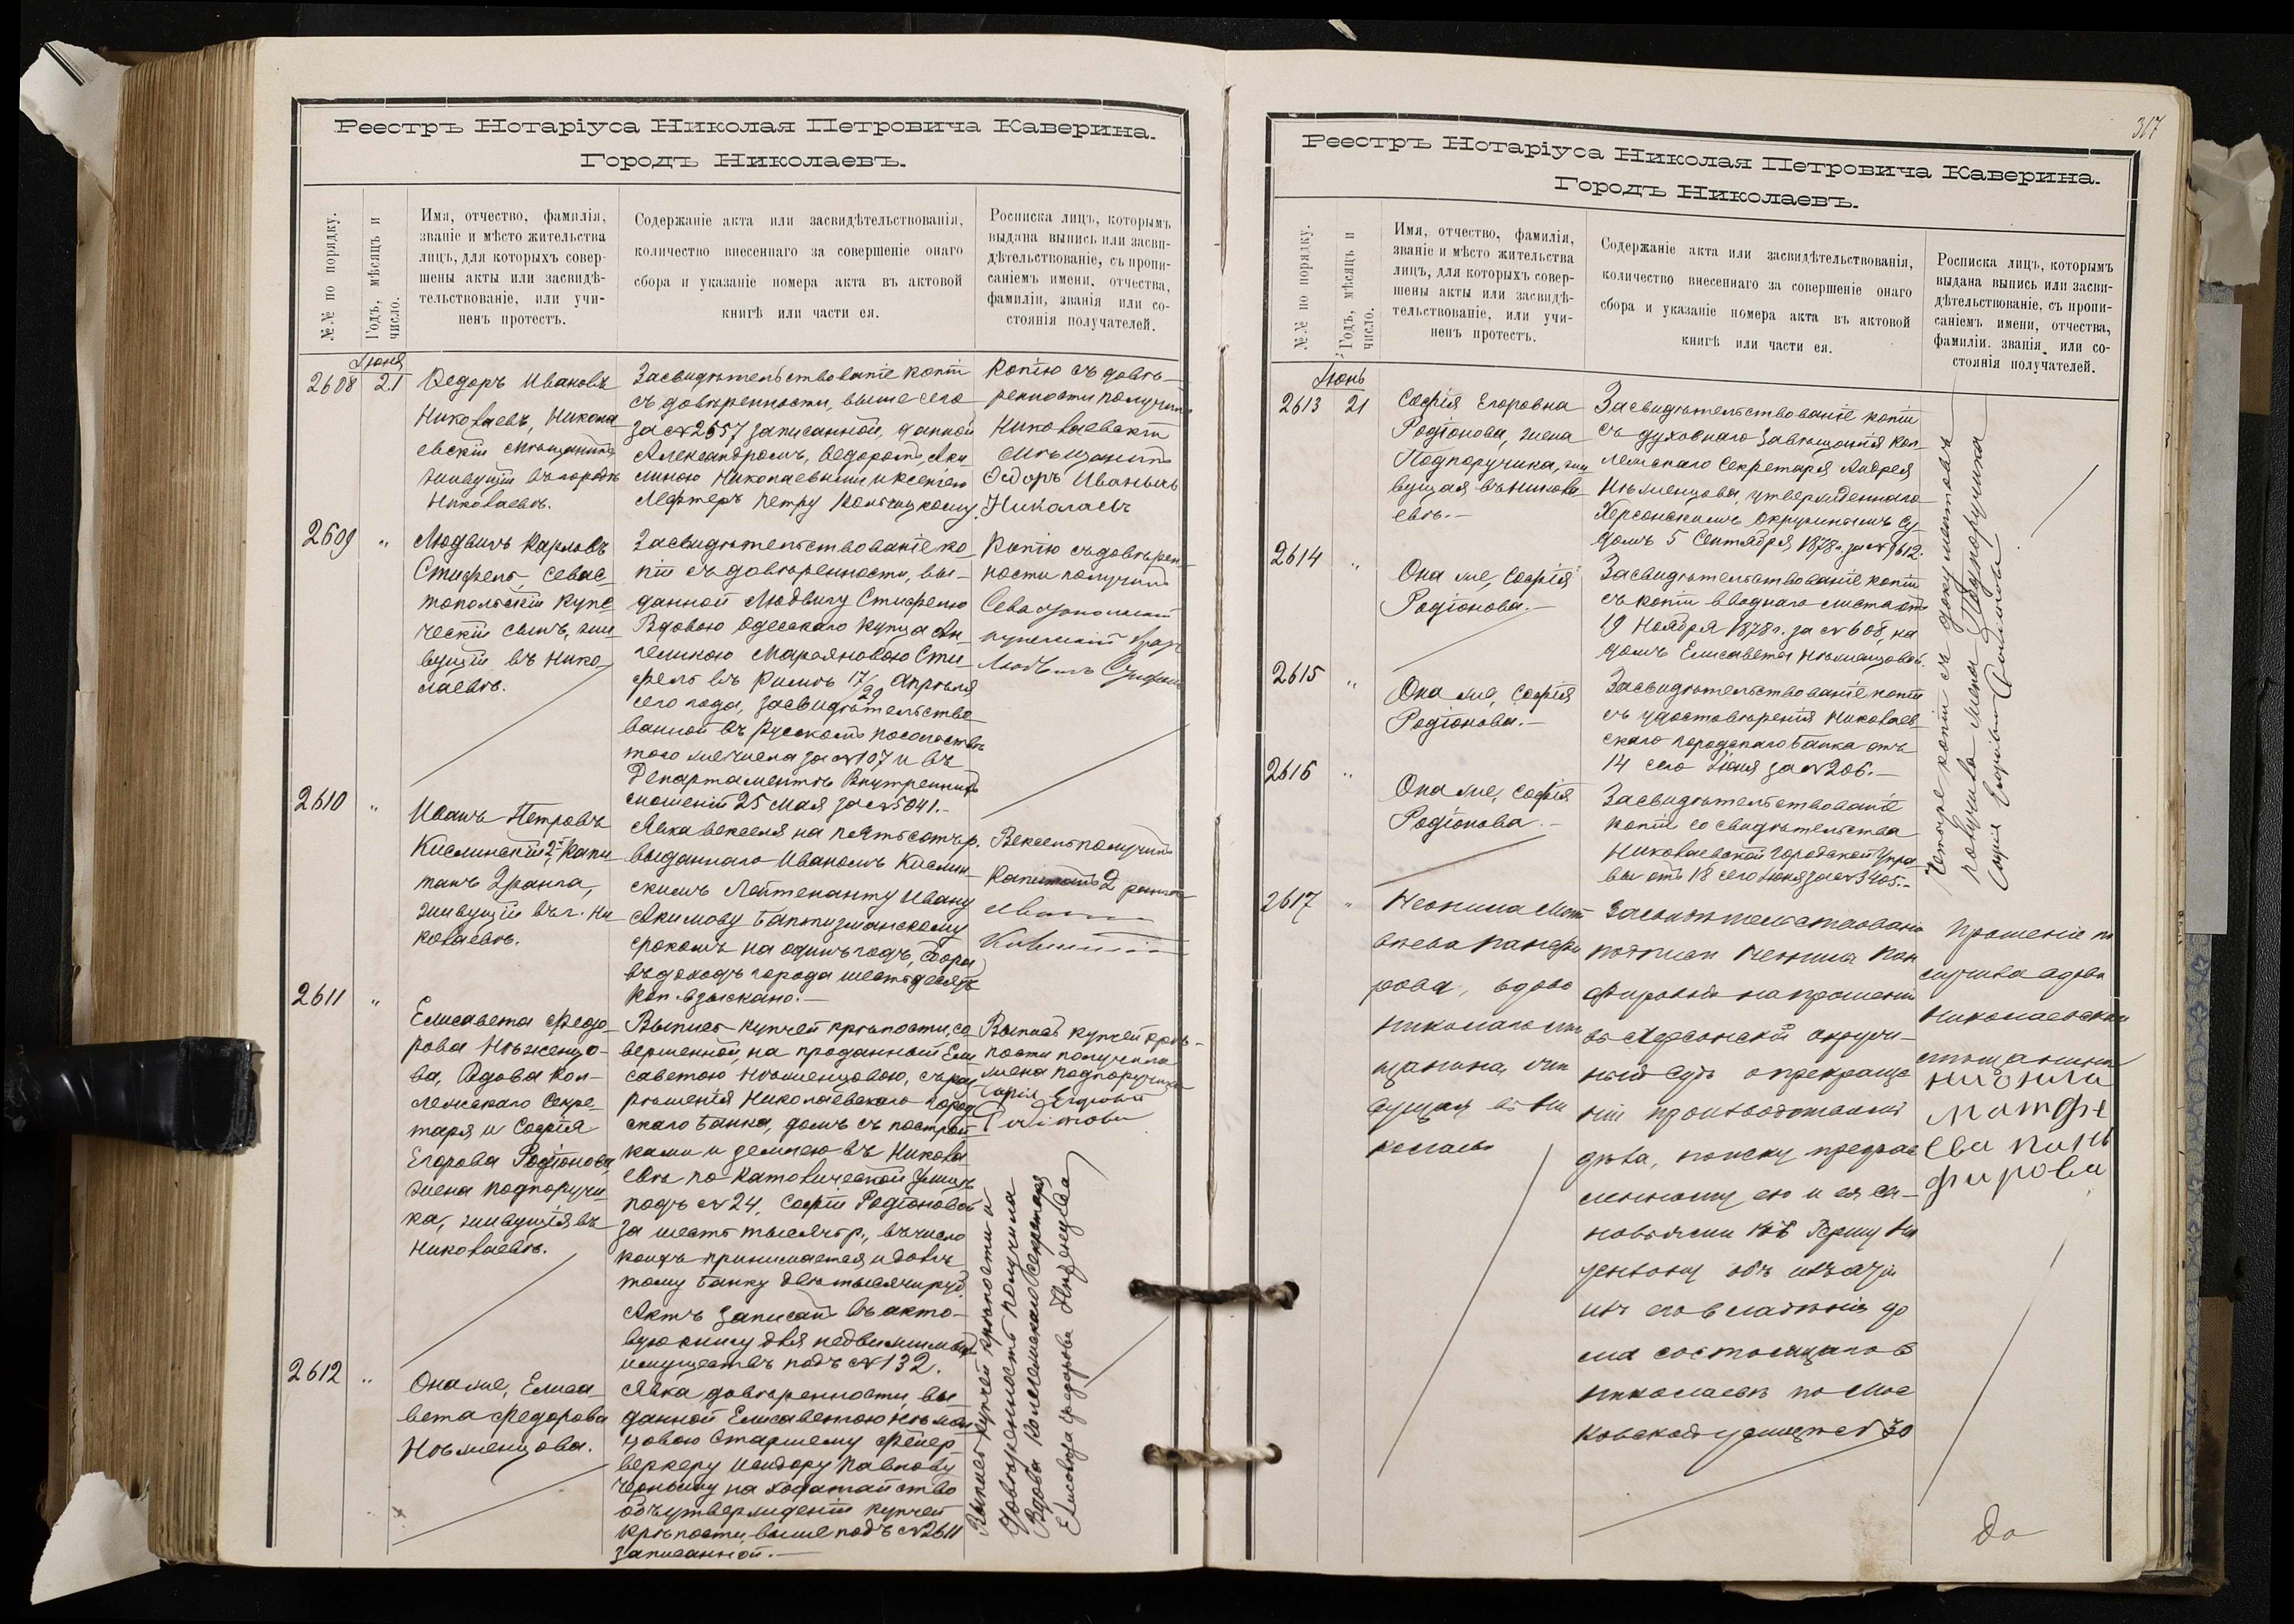 Реестръ Нотаріуса Николая Петровича Каверина.
Городъ Николаевъ.
№№ по порядку.
Годъ, мѣсяцъ и
число.
Имя, отчество, фамилія,
званіе и мѣсто жительства
лицъ, для которыхъ совер-
шены акты или засвидѣ-
тельствованіе, или учи-
ненъ протестъ.
Содержаніе акта или засвидѣтельствованія,
количество внесеннаго за совершеніе онаго
сбора и указаніе номера акта въ актовой
книгѣ или части ея.
Росписка лицъ, которымъ
выдана выпись или засви-
дѣтельствованіе, съ пропи-
саніемъ имени, отчества,
фамиліи, званія или со-
стоянія получателей.
Іюня
2608 21
Ѳедоръ Ивановъ
Николаевъ, Никола
евскій мѣщанинъ
живущій въ городѣ
Николаевѣ.
Засвидѣтельствованіе копіи
съ довѣренности, выше сего
за № 2557 записанной, данной
Александромъ, Ѳедоромъ, Аки
линою Николаевыми и Ксеніею
Мефтеръ Петру
Копію съ довѣ-
ренности получилъ
Николаевскій
мѣщанинъ
Ѳедоръ Ивановъ
Николаевъ
2609 "
Людвигъ Карловъ
Стифель, Севас-
топольскій купе
ческій сынъ, жи
вущій въ Нико-
лаевѣ.
Засвидѣтельствованіе ко-
піи съ довѣренности, вы-
данной Людвигу Стифелю
Вдовою Одесскаго купца Ан
геликою Марояновою Сти-
фель въ Римѣ 17/29 Апрѣля
сего года, засвидѣтельство-
ванной въ Русскомъ посольствѣ
того же числа за № 107 и въ
Департаментѣ Внутреннихъ
сношеній 25 Мая за № 5041.-
Копію съ довѣрен-
ности получилъ
Севастопольскій
купеческій
Людвигъ Стифель
2610 "
Иванъ Петровъ
Кислинскій 2й Капи
танъ 2 ранга,
живущій въ г. Ни
колаевѣ.
Явка векселя на пятьсотъ р.
выданнаго Иваномъ Кислин-
скимъ Лейтенанту Ивану
Акимову Баптизманскому
срокомъ на одинъ годъ, сбора
въ доходъ города шестьдесятъ
коп. взыскано.-
Вексель получилъ
Капитанъ 2 ранга
Иванъ
Кислинскій
2611 "
Елисавета Ѳедо-
рова Нѣженцо-
ва, Вдова Кол-
лежскаго Секре-
таря и Софія
Егорова Родіонова,
жена подпоручи-
ка, живущія въ
Николаевѣ.
Выпись купчей крѣпости, со
вершенной на проданный Ели
саветою Нѣженцовою, съ раз
рѣшенія Николаевскаго город
скаго Банка, домъ съ построй-
ками и землею въ Никола
евѣ по Католической улицѣ
подъ № 24, Софіи Родіоновой
за шесть тысячъ р., въ число
коихъ принимается и долгъ
тому Банку двѣ тысячи руб.
Актъ записанъ въ акто-
вую книгу для недвижимыхъ
имуществъ подъ № 132.
Выпись купчей крѣ-
пости получила
жена подпоручика
Софія Егоровна
Родіонова
2612 "
Она же, Елиса-
вета Ѳедорова
Нѣженцова.
Явка довѣренности, вы-
данной Елисаветою Нѣжен
цовою Старшему Фейер-
веркеру Исидору Павлову
на ходатайство
объ утвержденіи купчей
крѣпости, выше подъ № 2611
записанной.-
Выпись купчей крѣпости и
довѣренность получила
Вдова Коллежскаго Секретаря
Елисавета Ѳедорова Нѣженцова
317
Реестръ Нотаріуса Николая Петровича Каверина.
Городъ Николаевъ.
№№ по порядку.
Годъ, мѣсяцъ и
число.
Имя, отчество, фамилія,
званіе и мѣсто жительства
лицъ, для которыхъ совер-
шены акты или засвидѣ-
тельствованіе, или учи-
ненъ протестъ.
Содержаніе акта или засвидѣтельствованія,
количество внесеннаго за совершеніе онаго
сбора и указаніе номера акта въ актовой
книгѣ или части ея.
Росписка лицъ, которымъ
выдана выпись или засви-
дѣтельствованіе, съ пропи-
саніемъ имени, отчества,
фамиліи, званія или со-
стоянія получателей.
Іюнь
2613 21
Софія Егоровна
Родіонова, жена
Подпоручика, жи
вущая въ Никола
евѣ.-
Засвидѣтельствованіе копіи
съ духовнаго завѣщанія Кол
лежскаго Секретаря Андрея
Нѣженцова, утвержденнаго
Херсонскимъ Окружнымъ Су
домъ 5 Сентября 1878 г. за № 1612.
2614 "
Она же, Софія
Родіонова.-
Засвидѣтельствованіе копіи
съ копіи вводнаго листа отъ
19 Ноября 1878 г. за № 608, на
домъ Елисаветы Нѣженцовой.
2615 "
Она же, Софія
Родіонова.-
Засвидѣтельствованіе копіи
съ удостовѣренія Николаев
скаго городскаго Банка отъ
14 сего Іюня за № 206.-
2616 "
Она же, Софія
Родіонова.-
Засвидѣтельствованіе
копіи со свидѣтельства
Николаевской Городской Упра
вы отъ 18 сего Іюня за № 3405.-
Четыре копіи съ документовъ
получила жена Подпоручика
Софія Егоровна Родіонова
2617 "
Неонила Мат
вѣева Панфи
рова, вдова
Николаев
щанина, жи
вущая въ Ни
колаевѣ
Засвидѣтельствованіе
подписи Неонилы Пан
фировой на прошеніи
въ Херсонскій Окруж-
ный Судъ о прекраще
ніи производствомъ
дѣла, по иску предъяв
ленному ею и ея сы-
новьями къ
объ изъятіи
изъ его владѣнія до
ма состоящаго въ
Николаевѣ по Мос
ковской улицѣ № 30
Прошеніе по
лучила вдова
Николаевскаго
мѣщанина
Ниѳнила
Матфе
ева Пань
фирова
До